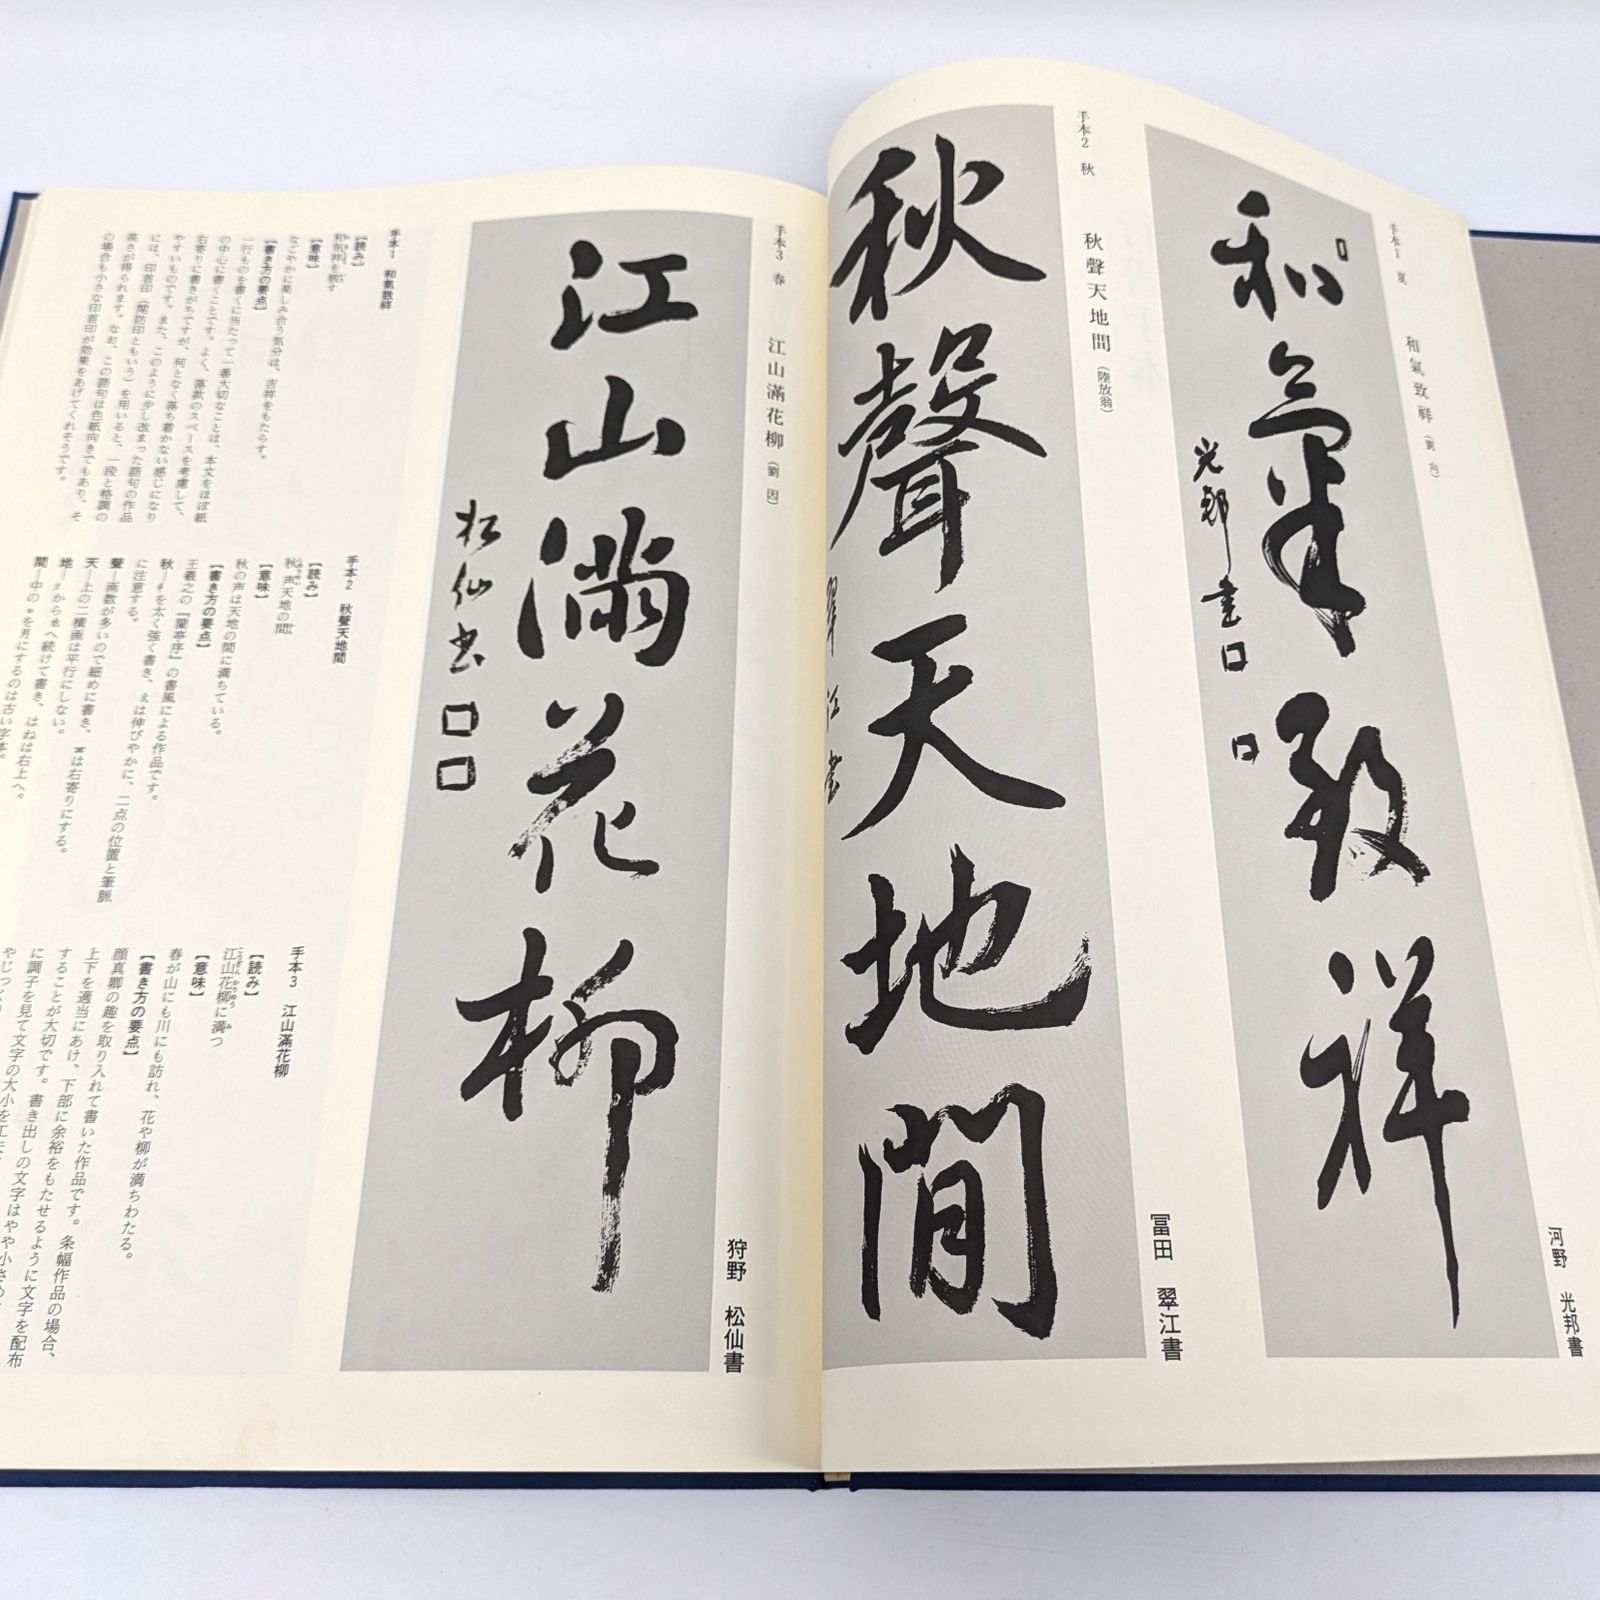 手本1 夏 和氣致祥(劉向)
和氣致祥
光邦書
河野 光邦書
手本2 秋 秋聲天地間(陸放翁)
秋聲天地間
翠江書
冨田 翠江書
手本3 春 江山滿花柳(劉因)
江山滿花柳
松仙書
狩野 松仙書
手本1 和氣致祥
【読み】
和気祥を致す
【意味】
なごやかに楽しみ合う気分は、吉祥をもたらす。
【書き方の要点】
一行ものを書くに当たって一番大切なことは、本文をほぼ紙
の中心に書くことです。よく、落款のスペースを考慮して、
右寄りに書きがちですが、何となく落ち着かない感じになり
やすいものです。また、このように少し改まった語句の作品
には、印首印(関防印ともいう)を用いると、一段と格調の
高さが得られます。なお、この語句は色紙向きでもあり、そ
の場合も小さな印首印が効果をあげてくれそうです。
手本2 秋聲天地間
【読み】
秋声天地の間
【意味】
秋の声は天地の間に満ちている。
【書き方の要点】
王羲之の『蘭亭序』の書風による作品です。
秋―禾を太く強く書き、火は伸びやかに、二点の位置と筆脈
に注意する。
聲―画数が多いので細めに書き、耳は右寄りにする。
天―上の二横画は平行にしない。
地―土から也へ続けて書き、はねは右上へ。
間―中の日を月にするのは古い字体。
手本3 江山滿花柳
【読み】
江山花柳に満つ
【意味】
春が山にも川にも訪れ、花や柳が満ちわたる。
【書き方の要点】
顔真卿の趣を取り入れて書いた作品です。条幅作品の場合、
上下を適当にあけ、下部に余裕をもたせるように文字を配布
することが大切です。書き出しの文字はやや小さめ
に調子を見て文字の大小を工夫
やじっくり